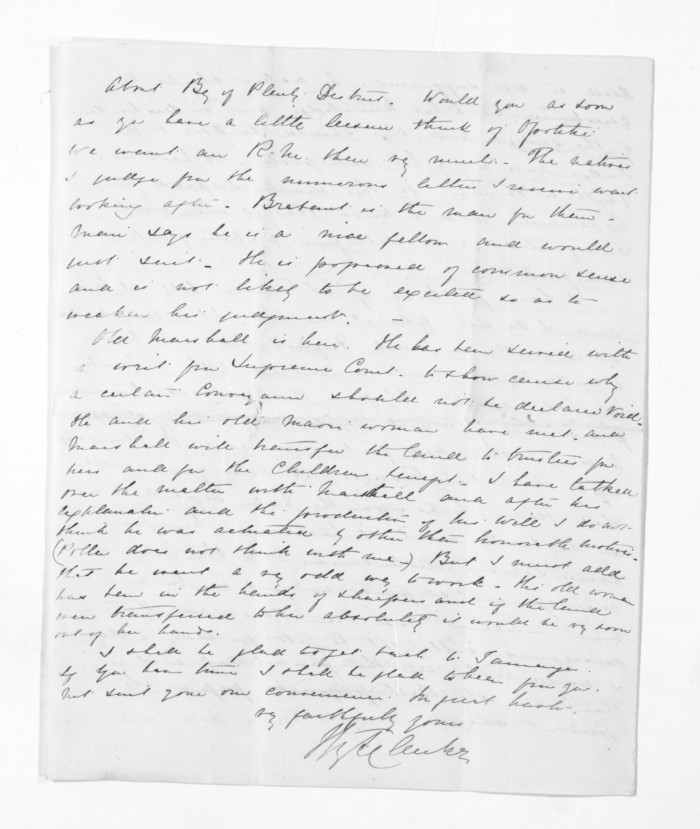 About Bay of Plenty District. Would you as soon
as you have a little leisure think of Opotiki
we want an R.M. there very much. The natives
I judge from the numerous letters I receive want
looking after. Brabant is the man for them.
Mair says he is a nice fellow and would
just suit. He is possessed of common sense
and is not likely to be excited so as to
weaken his judgment. —
Old Marshall is here. He has been served with
a writ from Supreme Court. to show cause why
a certain Conveyance should not be declared Void.
He and his old Maori woman have met. and
Marshall will transfer the land to trustees for
hers and for the Childrens benefit. I have talked
over the matter with Marshall and after his
explanation and the production of his will I do not
think he was actuated by other than honorable motives.
(Pollen does not think with me.) But I must add
that he went a very odd way to work. His old woman
has been in the hands of sharpers and if the land
were transferred to her absolutely it would be very soon
out of her hands.
I shall be glad to get back to Tauranga.
If you have time I shall be glad to hear from you.
but suit your own convenience. In great haste.
very faithfully yours
H T Clarke